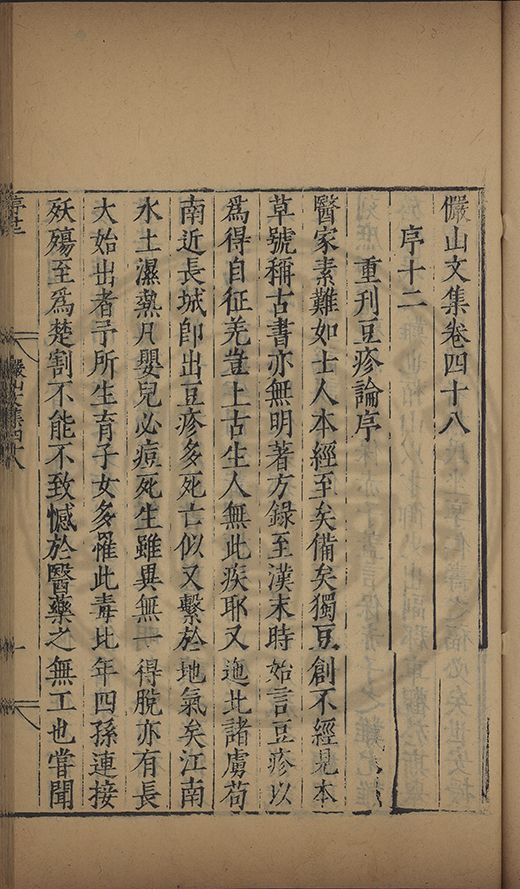 儼山文集卷四十八
序十二
重刊豆疹論序
醫家素難如士人本經至矣備矣獨豆創不經見本
草號稱古書亦無明著方錄至漢末時始言豆疹以
為得自征羌豈上古生人無此疾耶又迤北諸虜苟
南近長城卽出豆疹多死亡似又繫於地氣矣江南
水土濕熱凡嬰兒必痘死生雖異無一得脫亦有長
大始出者予所生育子女多罹此毒比年四孫連接
殀殤至為楚割不能不致憾於醫藥之無工也嘗聞
儼山文集四十八
一